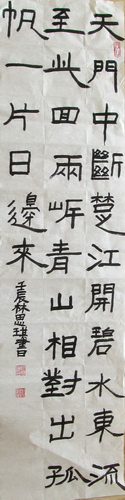 天門中斷楚江開碧水東流
至此回兩岍青山相對出孤
帆一片日邊来
壬辰林思琪書